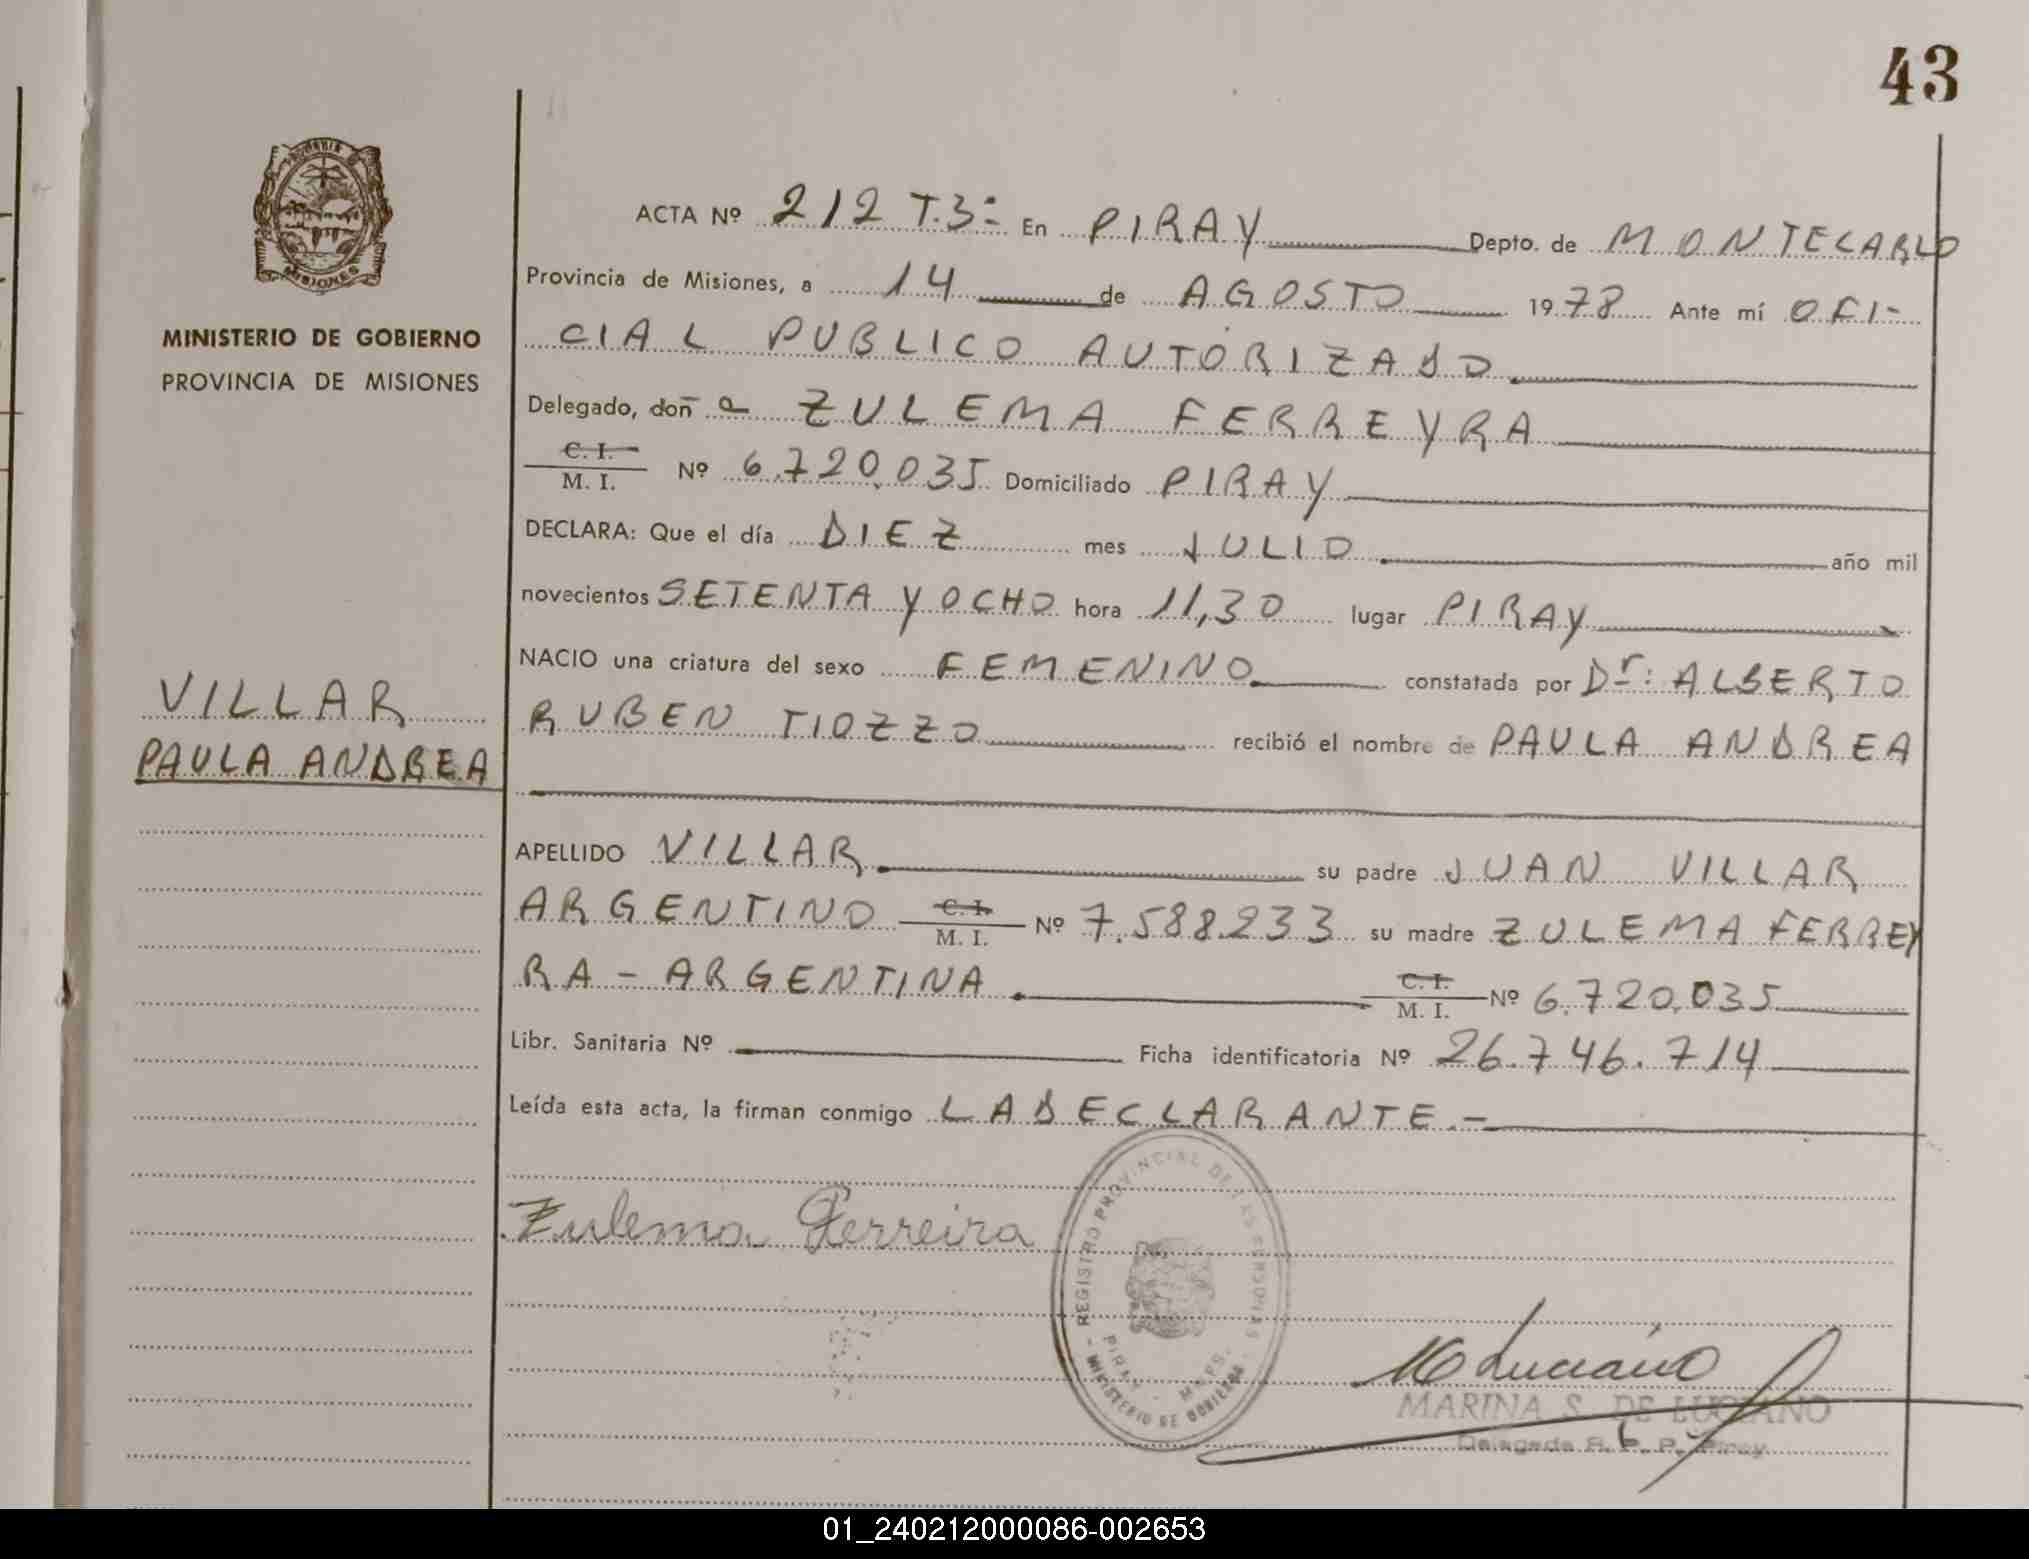 43
PROVINCIA DE
MISIONES
MINISTERIO DE GOBIERNO
PROVINCIA DE MISIONES
VILLAR
PAULA ANDREA
ACTA Nº 212 T.3º En PIRAY Depto. de MONTECARLO
Provincia de Misiones, a 14 de AGOSTO 1978 Ante mí OFI-
CIAL PUBLICO AUTORIZADO
Delegado, don a ZULEMA FERREYRA
C. I.
M. I. Nº 6.720.035 Domiciliado PIRAY
DECLARA: Que el día DIEZ mes JULIO año mil
novecientos SETENTA Y OCHO hora 11,30 lugar PIRAY
NACIO una criatura del sexo FEMENINO constatada por Dr: ALBERTO
RUBEN TIOZZO recibió el nombre de PAULA ANDREA
APELLIDO VILLAR su padre JUAN VILLAR
ARGENTINO C. I. M. I. Nº 7.588.233 su madre ZULEMA FERREY
RA - ARGENTINA. C. I. M. I. Nº 6.720.035
Libr. Sanitaria Nº Ficha identificatoria Nº 26.746.714
Leída esta acta, la firman conmigo LA DECLARANTE.-
Zulema Ferreira
REGISTRO PROVINCIAL DE LAS PERSONAS
PIRAY - MNES.
MINISTERIO DE GOBIERNO
M Luciano
MARINA S. DE LUCIANO
Delegada R. P. P. Piray
01_240212000086-002653